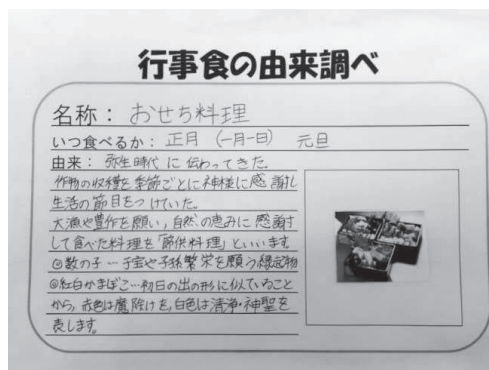 行事食の由来調べ
名称：おせち料理
いつ食べるか：正月（一月一日） 元旦
由来：弥生時代に伝わってきた。
作物の収穫を季節ごとに神様に感謝し
生活の節目をつけていた。
大漁や豊作を願い，自然の恵みに感謝
して食べた料理を「節供料理」といいます
◎数の子…子宝や子孫繁栄を願う縁起物
◎紅白かまぼこ…初日の出の形に似ていること
から，赤色は魔除けを，白色は清浄・神聖を
表します。